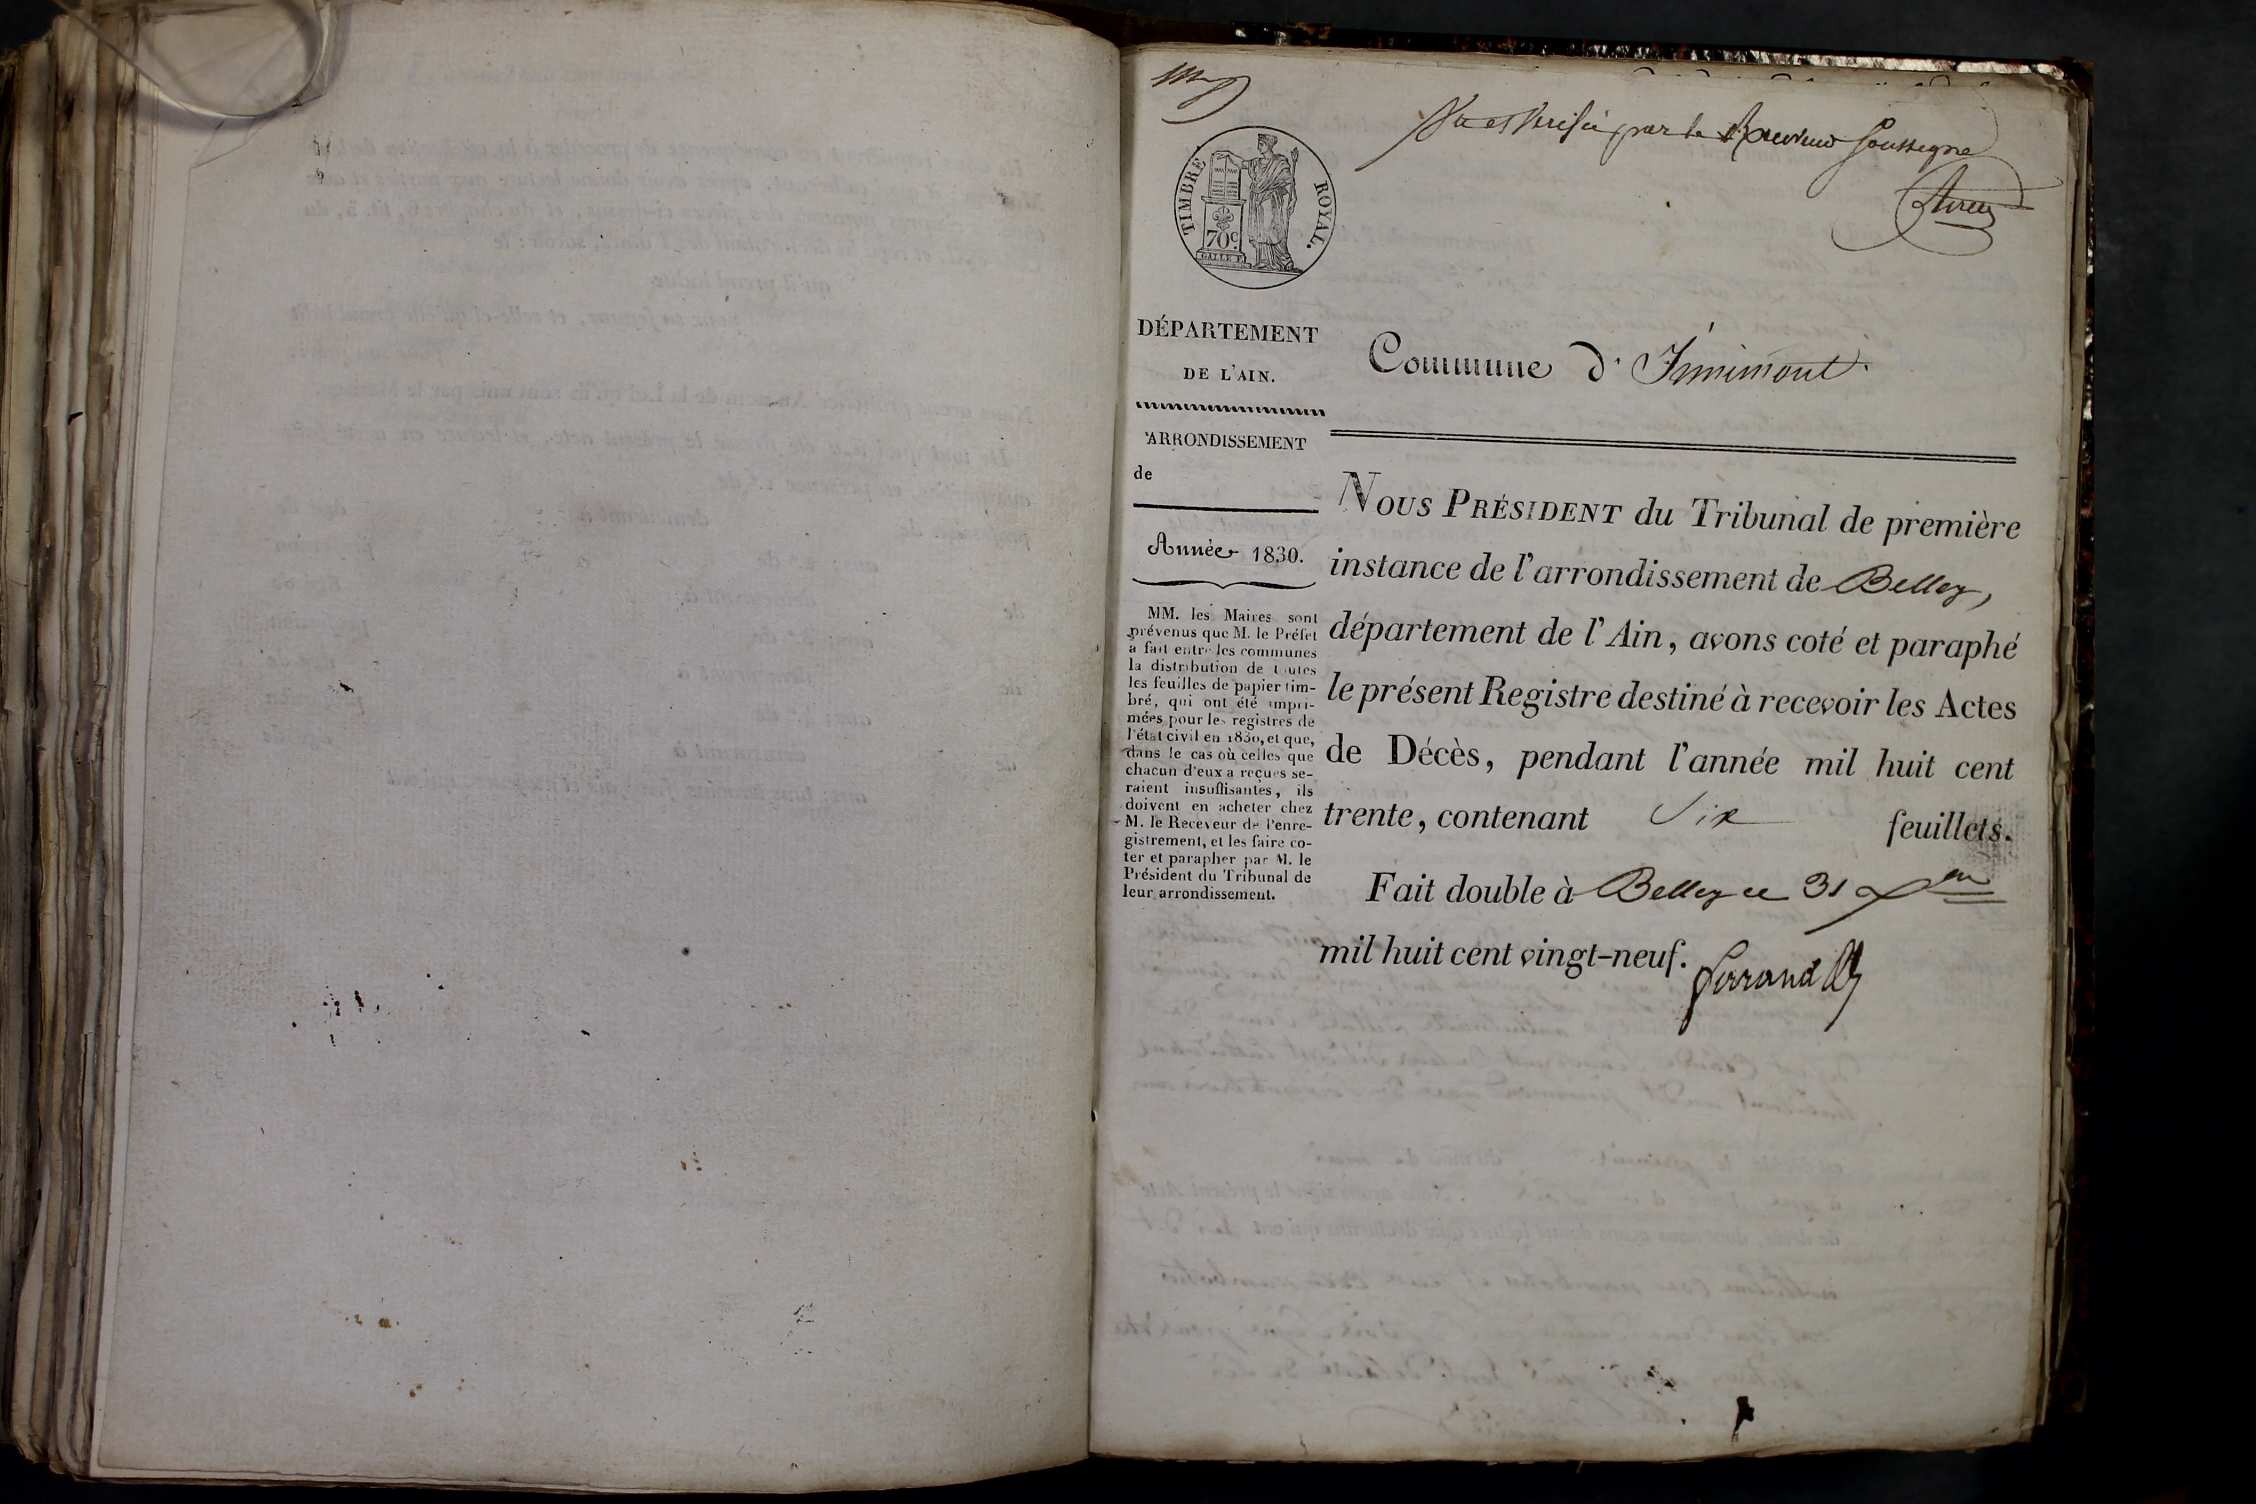 Vu et Vérifié par le Receveur Soussigné
TIMBRE ROYAL.
70c
GALLE F.
DÉPARTEMENT
DE L'AIN.
ARRONDISSEMENT
de
Année 1830.
MM. les Maires sont
prévenus que M. le Préfet
a fait entre les communes
la distribution de toutes
les feuilles de papier tim-
bré, qui ont été impri-
mées pour les registres de
l'état civil en 1830, et que,
dans le cas où celles que
chacun d'eux a reçues se-
raient insuffisantes, ils
doivent en acheter chez
M. le Receveur de l'enre-
gistrement, et les faire co-
ter et parapher par M. le
Président du Tribunal de
leur arrondissement.
Commune d'Innimont.
NOUS PRÉSIDENT du Tribunal de première
instance de l'arrondissement de Belley,
département de l'Ain, avons coté et paraphé
le présent Registre destiné à recevoir les Actes
de Décès, pendant l'année mil huit cent
trente, contenant Six feuillets.
Fait double à Belley ce 31 Xbre
mil huit cent vingt-neuf.